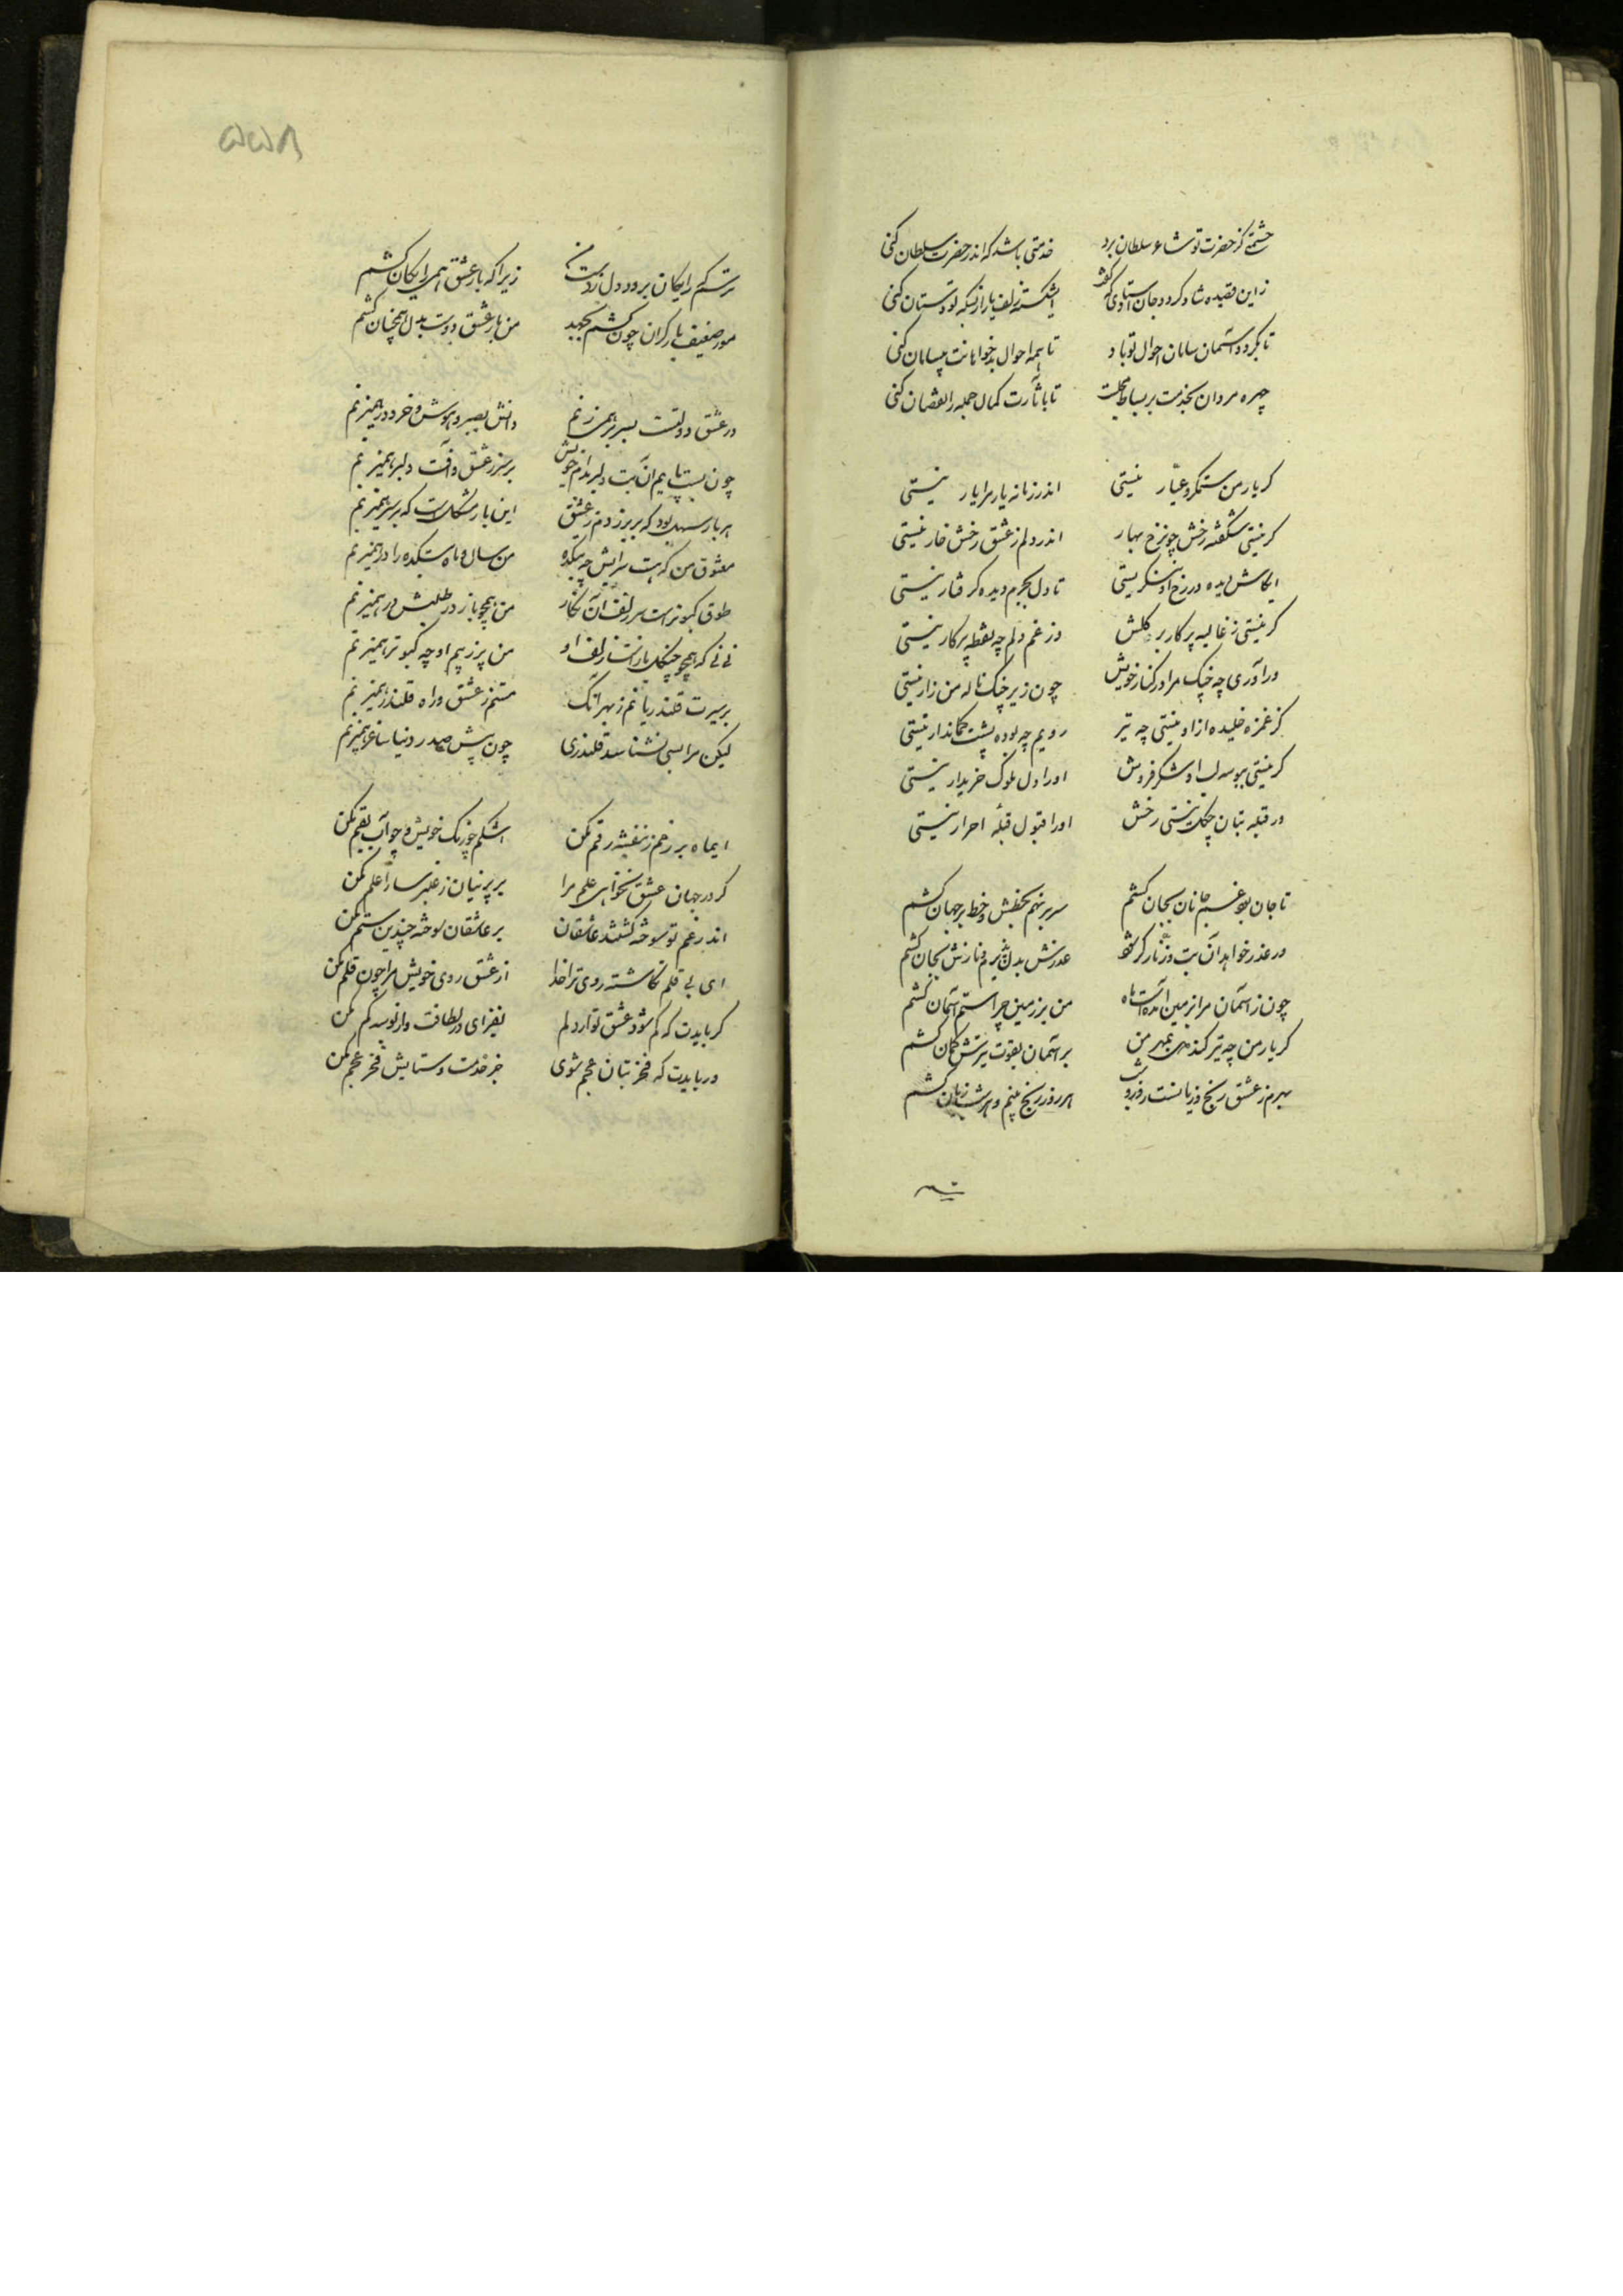 حشمتی کز حضرت تو شاعر سلطان برد خدمتی باشد که اندر حضرت سلطان کنی
زاین قصیده شاد گردد جان استادی که گفت ای شکسته زلف یار از بسکه تو دستان کنی
تا بگردد آسمان سامان احوال تو باد تا همه احوال بدخواهانت بیسامان کنی
چهره مردان بخدمت بر بساط مجلست تا بآثارت کمال جمله را نقصان کنی
گر یار من ستمگر و عیار نیستی اندر زمانه یار مرا یار نیستی
گر نیستی شکفته رخش چون رخ بهار اندر دلم ز عشق رخش خار نیستی
ایکاش دیده در رخ او ننگریستی تا دل بجرم دیده گرفتار نیستی
گر نیستی ز غالیه پرگار بر گلش وز غم دلم چه نقطه پرگار نیستی
ور آوری چه چنگ مرا در کنار خویش چون زیر چنگ ناله من زار نیستی
گر غمزه خلیده از او نیستی چه تیر رویم چه توده پشت کماندار نیستی
گر نیستی ببوسه لب او شکر فروش او را دل ملوک خریدار نیستی
ور قبله بتان چگل نیستی رخش او را قبول قبله احرار نیستی
تا جان بود غم جانان بجان کشم سر بر نهم بخطش و خط بر جهان کشم
ور عذر خواهد آن بت وز ناز گر شود عذرش بدل پذیرم و نازش بجان کشم
چون ز آسمان مرا بزمین آمده است ماه من بر زمین چرا ستم آسمان کشم
گر یار من چه تیر کند دل بمهر من بر آسمان بقوت تیرش کمان کشم
بهرم ز عشق رنج و زیانست روز و شب هر روز رنج بینم و هر شب زیان کشم
ترسم
۵۵۸
ترسم که رایگان برود دل ز دست من زیرا که بار عشق همی رایگان کشم
مور ضعیف بار گران چون کشد بجهد من بار عشق دوست بدل همچنان کشم
در عشق دولتست بسر بر همیزنم دانش بصبر و هوش و خرد در همیزنم
چون بست پایم آن بت دلبر بدام خویش بر سر ز عشق و آفت دلبر همیزنم
هر بار سهل بود که بر بر زدم ز عشق این بار مشکل است که بر سر همیزنم
معشوق من که هست سرایش چه بتکده من سال و ماه بتکده را در همیزنم
طوق کبوتر است سر زلف آن نگار من همچو باز در طلبش در همیزنم
نی نی که همچو چنگل بازانست زلف او من پر ز بیم او چه کبوتر همیزنم
بر سیرت قلندریانم ز بهر آنک مستم ز عشق و راه قلندر همیزنم
لیکن مرا بسی نشناسد قلندری چون پیش صدر دنیا ساغر همیزنم
ایماه بر رخم ز بنفشه رقم مکن اشکم چو رنگ خویش و چو آب بقم مکن
گر در جهان عشق نخواهی علم مرا بر پرنیان ز عنبر سارا علم مکن
اندر غم تو سوخته گشتند عاشقان بر عاشقان سوخته چندین ستم مکن
ای بی قلم نگاشته روی ترا خدا از عشق روی خویش مرا چون قلم مکن
گر بایدت که کم شود عشق تو از دلم بفزای در لطافت و از بوسه کم مکن
ور بایدت که فخر بتان عجم شوی جز خدمت و ستایش فخر عجم مکن